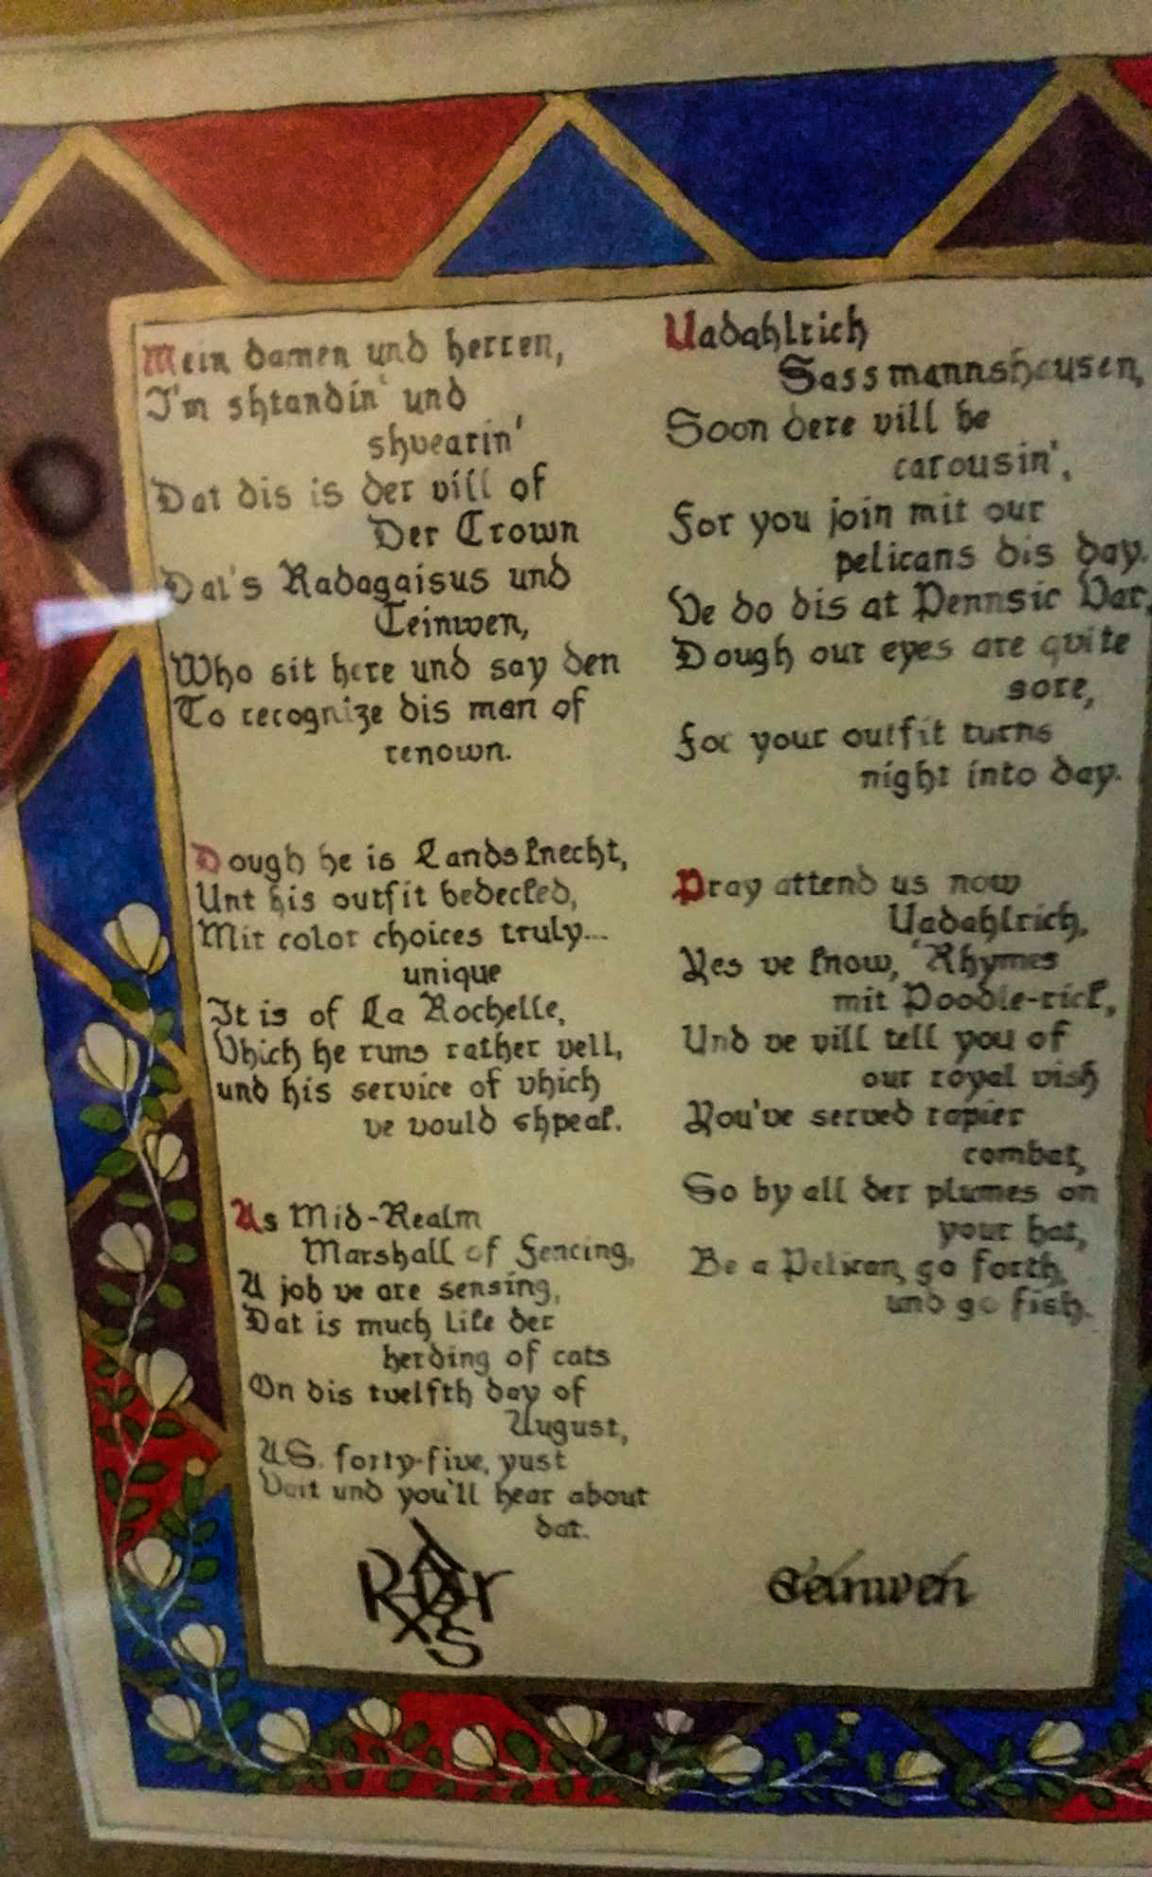 Mein damen und herren,
I'm shtandin' und
shvearin'
Dat dis is der vill of
Der Crown
Dat's Radagaisus und
Ceinwen,
Who sit here und say den
To recognize dis man of
renown.
Dough he is Landsknecht,
Unt his outfit bedecked,
Mit color choices truly...
unique
It is of La Rochelle,
Vhich he runs rather vell,
und his service of vhich
ve vould shpeak.
As Mid-Realm
Marshall of Fencing,
A job ve are sensing,
Dat is much like der
herding of cats
On dis tvelfth day of
August,
AS. forty-five, yust
Vait und you'll hear about
dat.
Uadahlrich
Sassmannshausen,
Soon dere vill be
carousin',
For you join mit our
pelicans dis day.
Ve do dis at Pennsic Var,
Dough our eyes are quite
sore,
For your outfit turns
night into day.
Pray attend us now
Uadahlrich,
Yes ve know, 'Rhymes
mit Poodle-rick,
Und ve vill tell you of
our royal vish
You've served rapier
combat,
So by all der plumes on
your hat,
Be a Pelican, go forth,
und go fish.
Ceinwen